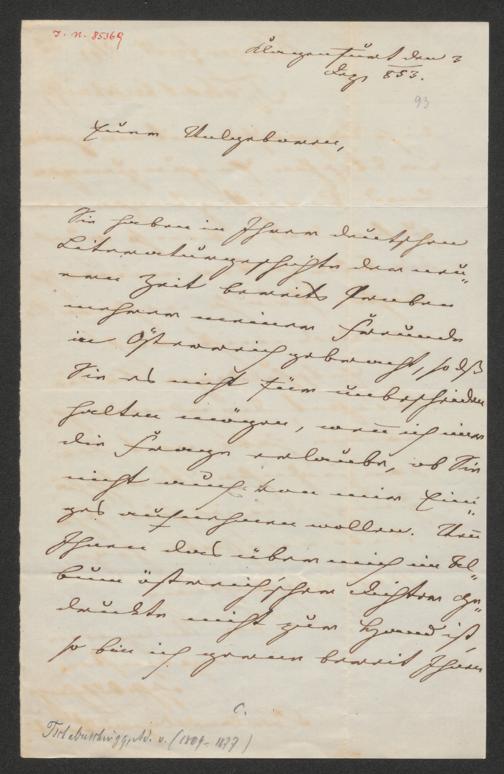 J. N. 85369
Klagenfurt den 3
Dez 853.
93
Euer Wolgeboren,
Sie haben in Ihrer deutschen
Literaturgeschichte der neu„
ern Zeit bereits Proben
mehrer meiner Freunde
in Österreich gebracht, so dß
Sie es nicht für unbescheiden
halten mögen, wenn ich mir
die Frage erlaube, ob Sie
nicht auch von mir Eini„
ges aufnehmen wollen. Wenn
Ihnen das über mich im Al„
bum österreich'scher Dichter Ge„
druckte nicht zur Hand ist,
so bin ich gerne bereit Ihnen
C.
Tschabuschnigg, Ad. v. (1809-1877)